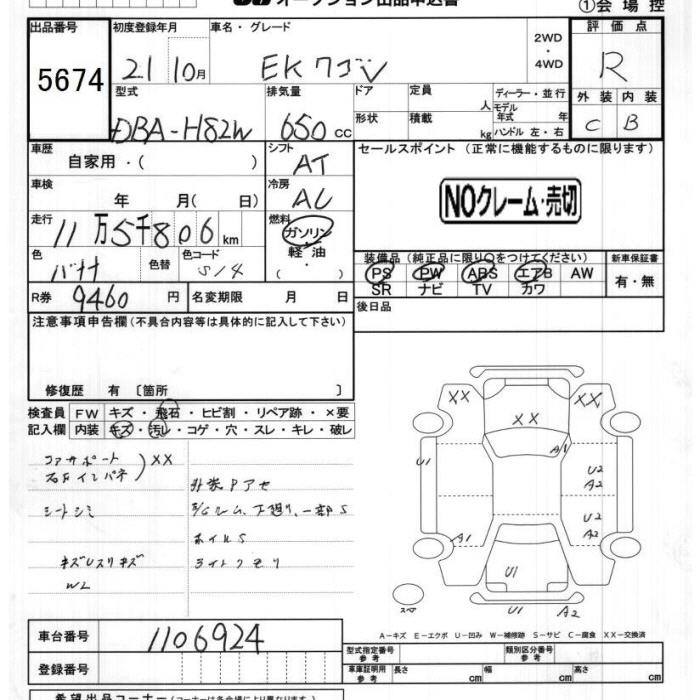 オークション出品申込書
①会場控
出品番号
5674
初度登録年月
車名・グレード
21 10月
EKワゴン
2WD
・
4WD
評価点
R
型式
排気量
ドア
定員
人
ディーラー・並行
モデル年式 年
外装 内装
DBA-H82W
650cc
形状
積載
kg
ハンドル 左・右
C B
車歴
自家用・( )
シフト
AT
セールスポイント (正常に機能するものに限ります)
車検
年 月( 日)
冷房
AC
NOクレーム・売切
走行
11万5千806km
燃料
ガソリン・軽油
色
色替
色コード
S14
装備品 (純正品に限り○をつけてください)
新車保証書
PS PW ABS エアB AW
有・無
SR ナビ TV カワ
R券
9460円
名変期限 月 日
後日品
注意事項申告欄(不具合内容等は具体的に記入して下さい)
修復歴 有 〔箇所 〕
検査員記入欄
FW キズ・飛石・ヒビ割・リペア跡・×要
内装 キズ・汚レ・コゲ・穴・スレ・キレ・破レ
コアサポート
右Fインパネ
XX
シートシミ
外装Pアセ
F/Gルーム、下廻り、一部S
ホイルS
ライトクモリ
W2
XX
XX
XX
A1
U1
U2
A2
U2
A2
A1
U1
スペア
U1
A2
A-キズ E-エクボ U-凹み W-補修跡 S-サビ C-腐食 XX-交換済
車台番号
1106924
登録番号
型式指定番号
参考
類別区分番号
参考
車庫証明用
参考
長さ cm
幅 cm
高さ cm
希望出品コーナー(コーナーは各会場により異なります)